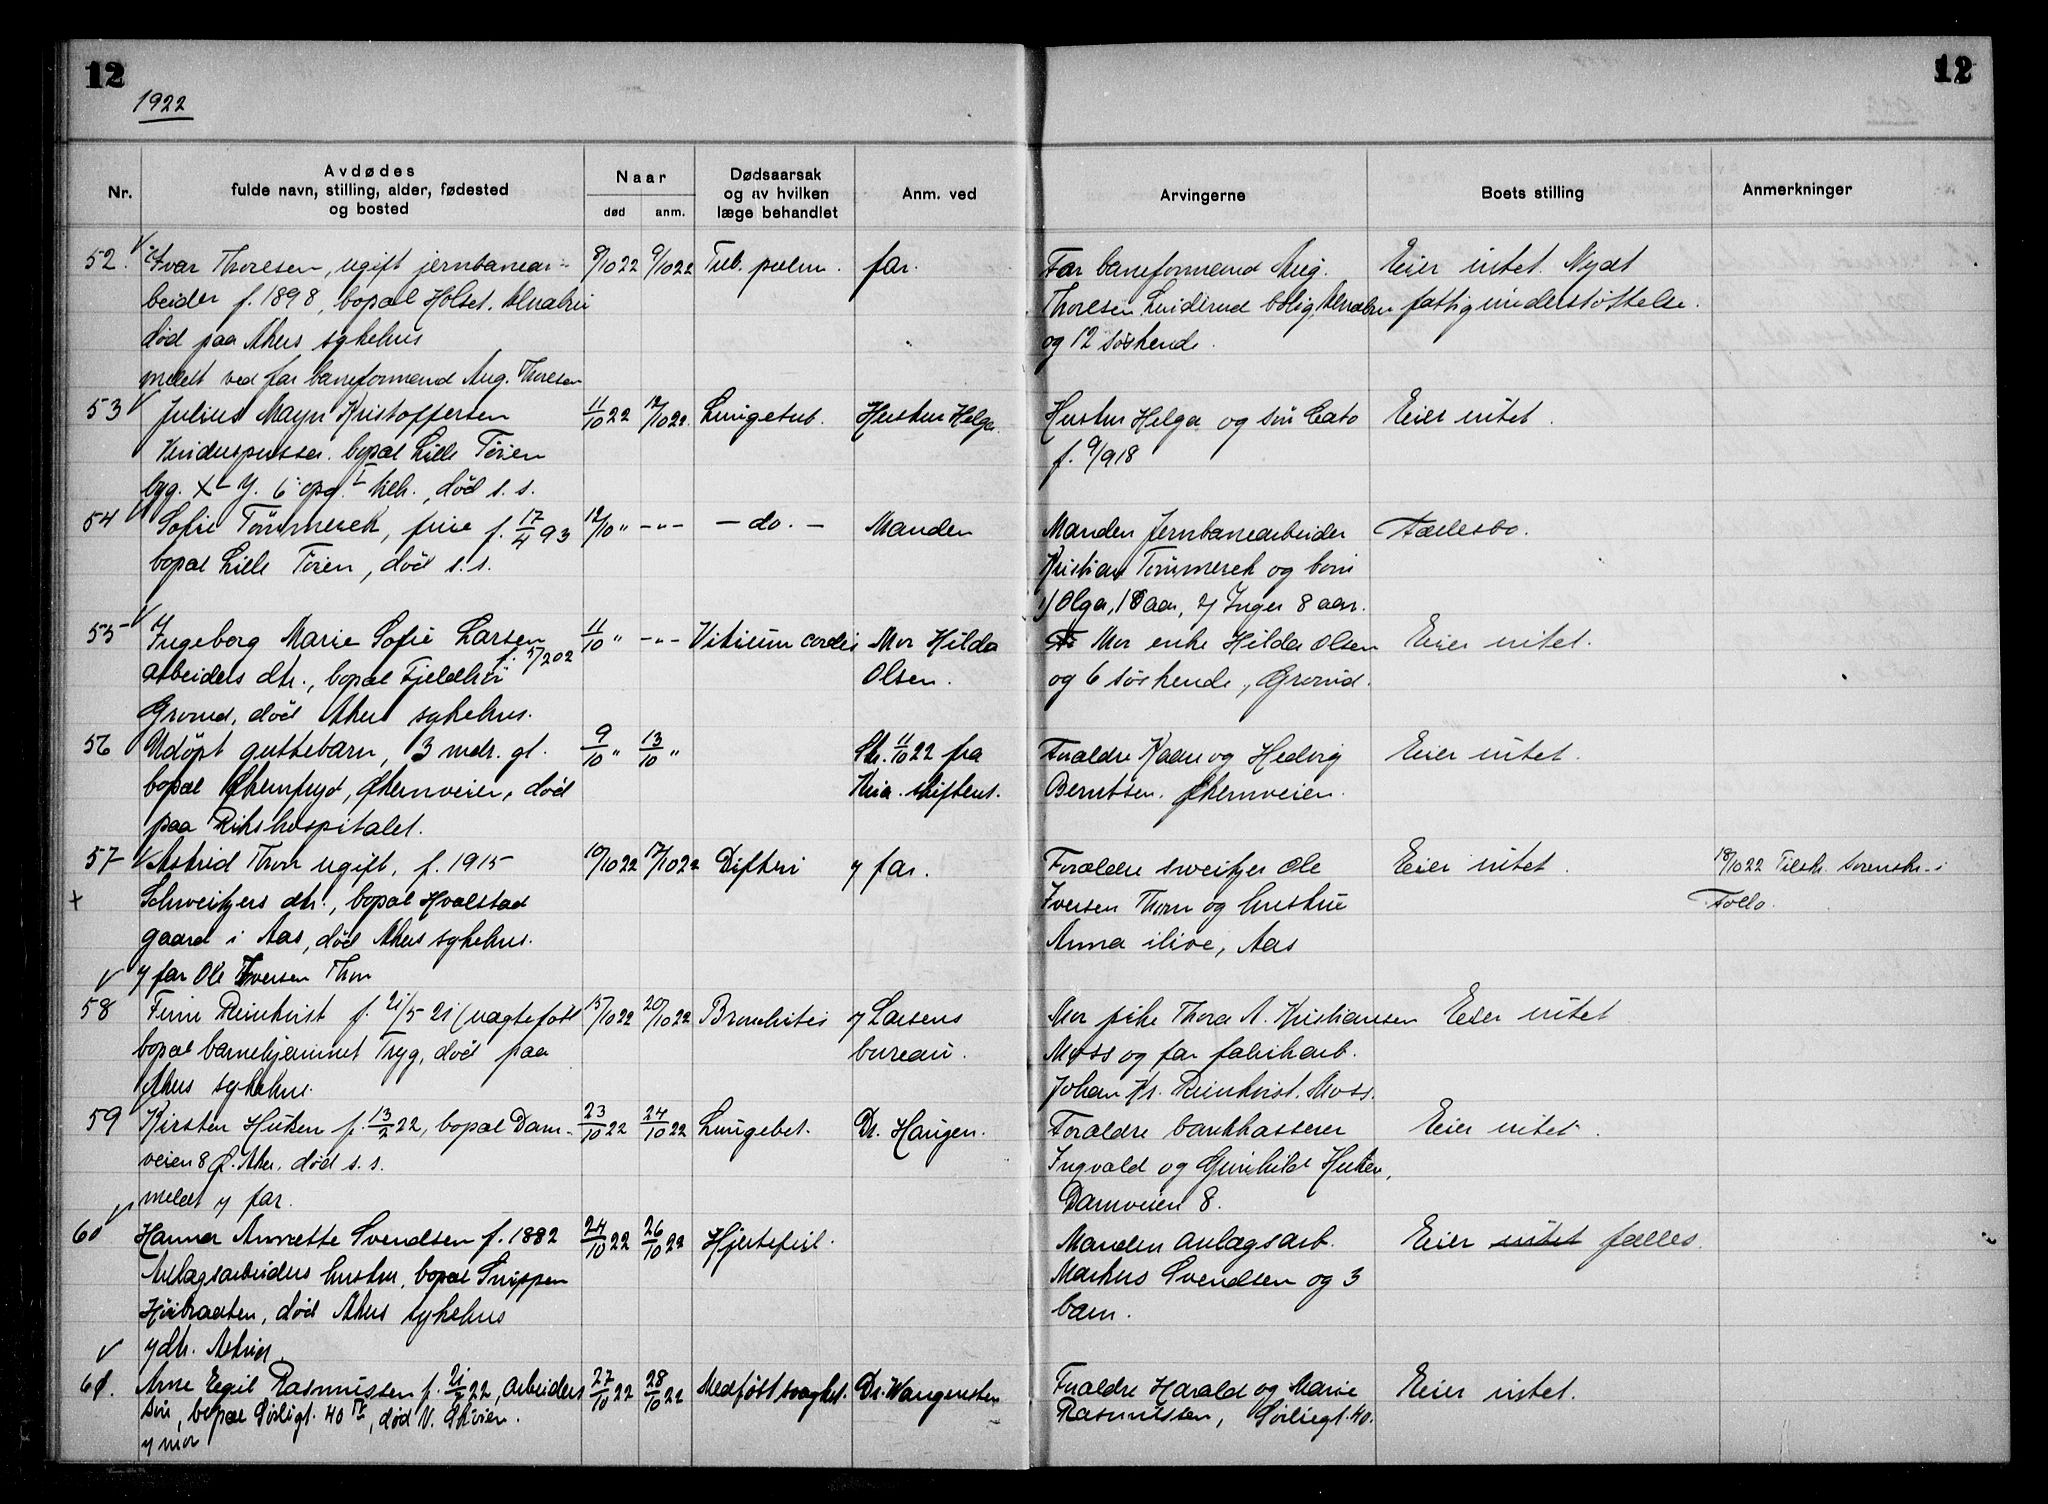 12
12
1922
Nr.
Avdødes
fulde navn, stilling, alder, fødested
og bosted
Naar
død
anm.
Dødsaarsak
og av hvilken
læge behandlet
Anm. ved
Arvingerne
Boets stilling
Anmerkninger
52. Ivar Thoresen, ugift jernbanear- 8/10 22 9/10 22 Tub. pulm. far. Far baneformand Aug. Eier intet. Nydt
beider f. 1898, bopæl Holset. Alnabru Thoresen Linderud bolig, Alnabru fattigunderstøttelse.
død paa Akers sykehus og 12 søskende.
meldt ved far baneformand Aug. Thoresen
53 Julius Mayn Kristoffersen 11/10 22 12/10 22. Lungetub. Hustru Helga. Hustru Helga og søn Cato Eier intet.
Vinduspusser. bopæl Lille Tøien f. 9/9 18
byg. X - Y. 6 opg. I Veh., død s. s.
54 Sofie Tömmerek, frue f. 17/4 93 12/10 " - " - - do. - Manden Manden Jernbanearbeider Fællesbo.
bopæl Lille Tøien, død s. s. Kristian Tömmerek og børn
1) Olga, 18 aar, 2) Inger 8 aar.
55 Ingeborg Marie Sofie Larsen 11/10 " - " - Vitium cordis Mor Hilda Mor enke Hilda Olsen Eier intet.
f. 5/2 02
arbeiders dtr., bopæl Fjeldhøi Olsen. og 6 søskende, Grorud.
Grorud, død Akers sykehus.
56 Udöpt guttebarn, 3 mdr. gl. 9/10 " 13/10 " Skr. 11/10 22 fra Foraldre Kaare og Hedvig Eier intet.
bopæl Økernfryd, Økernveien, død Kria. skifteret. Berntsen. Økernveien.
paa Rikshospitalet.
57 Astrid Thon ugift, f. 1915 10/10 22 17/10 22 Difteri v/ far. Forældre sveitzer Ole Eier intet. 18/10 22 Tilskr. sorenskr. i
+ Schweitzers dtr., bopæl Kvalstad Iversen Thon og hustru Follo.
gaard i Aas, død Akers sykehus. Anna ilive, Aas
v/ far Ole Iversen Thon
58 Finn Reinkvist f. 21/5 21 (uægtefött 15/10 22 20/10 22 Bronchitis v/ Larsens Mor pike Thora A. Kristiansen Eier intet
bopæl barnehjemmet Tryg, død paa bureau. Moss og far fabrikarb.
Akers sykehus. Johan Kr. Reinkvist. Moss.
59 Kirsten Huken f. 13/2 22, bopæl Dam- 23/10 22 24/10 22 Lungebet. Dr. Haugen. Forældre bankkasserer Eier intet.
veien 8 Ø. Aker. død s. s. Ingvald og Gunhild Huken,
meldt v/ far. Damveien 8.
60 Hanna Annette Svendsen f. 1882 24/10 22 26/10 22 Hjertefeil. Manden anlægsarb. Eier intet fælles.
Anlægsarbeiders hustru, bopæl Snippen Markus Svendsen og 3
Høibraaten, død Akers sykehus barn.
v/ dtr. Astrid.
61. Arne Egil Rasmussen f. 22, arbeiders 27/10 22 28/10 22 Medføtt svaghet. Dr. Wangensten Foraldre Harald og Marie Eier intet.
søn, bopæl Sørligt. 40 IV, død V. Skøien. Rasmussen, Sørligt. 40.
v/ mor